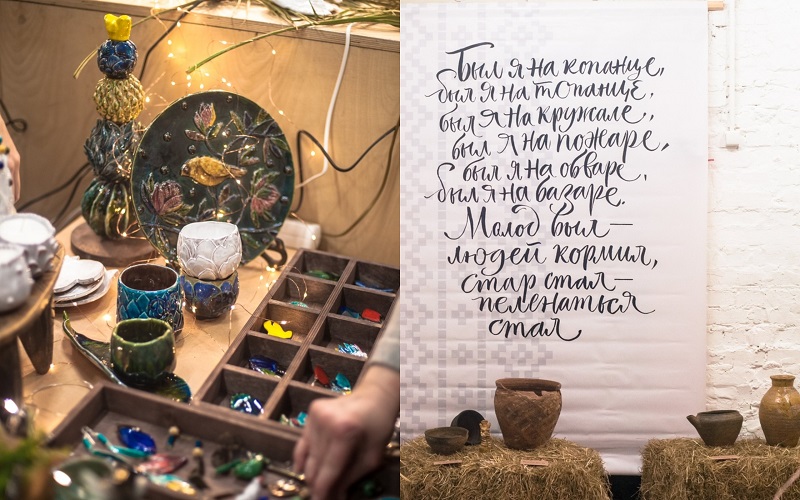 Был я на копанце,
был я на топанце,
был я на кружале,
был я на пожаре,
был я на обваре,
был я на базаре.
Молод был —
людей кормил,
стар стал —
пеленаться
стал